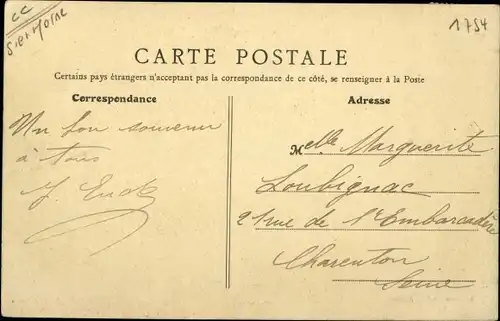 CC
1754
CARTE POSTALE
Certains pays étrangers n'acceptant pas la correspondance de ce côté, se renseigner à la Poste
Correspondance
Un bon souvenir
à tous
Adresse
Melle Marguerite
Loubignac
21 rue de l'Embarcadère
Charenton
Seine